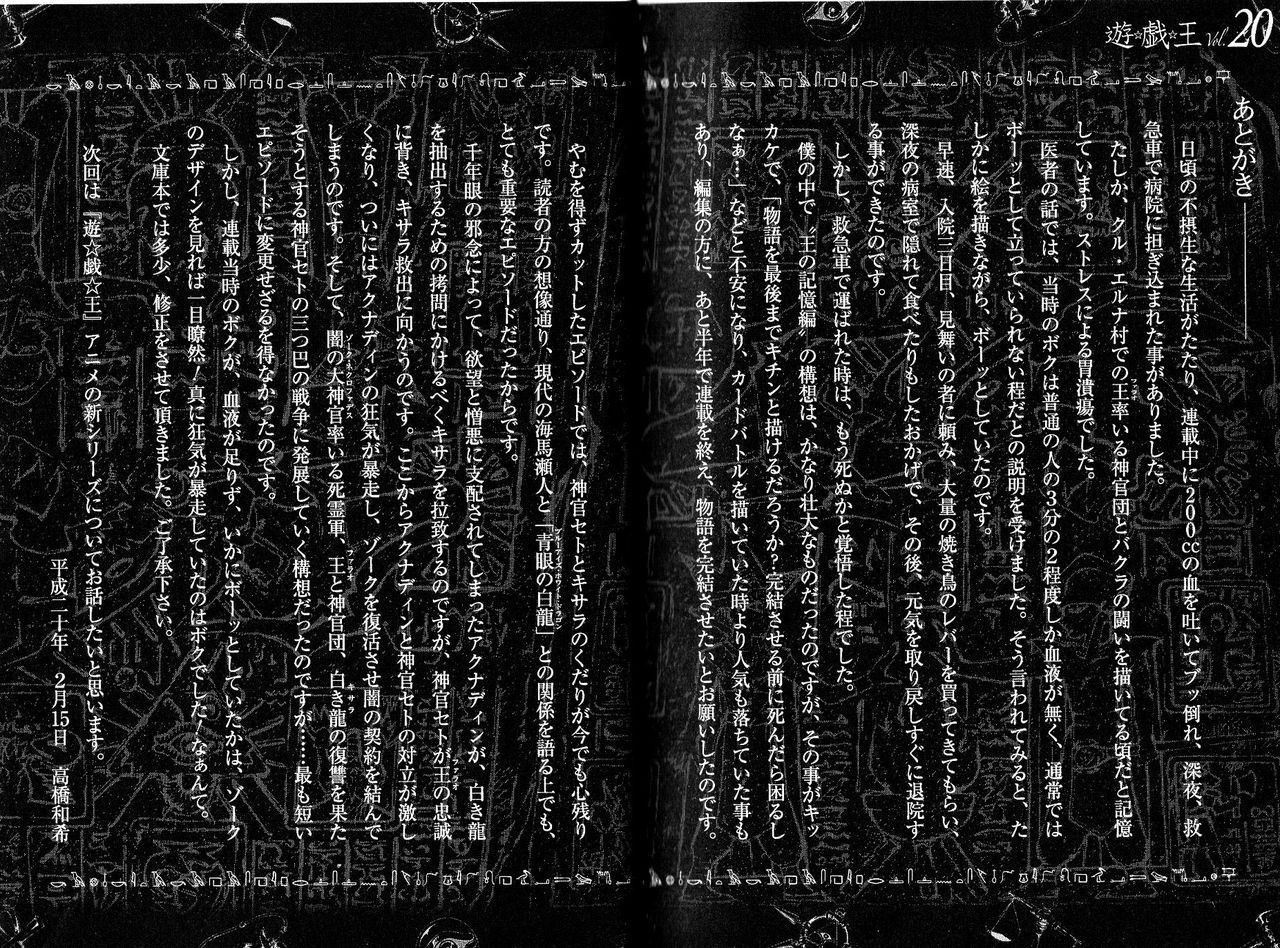 遊☆戯☆王 Vol.20
あとがき
日頃の不摂生な生活がたたり、連載中に200ccの血を吐いてブッ倒れ、深夜、救
急車で病院に担ぎ込まれた事がありました。
たしか、クル・エルナ村での王率いる神官団とバクラの闘いを描いてる頃だと記憶
しています。ストレスによる胃潰瘍でした。
医者の話では、当時のボクは普通の人の3分の2程度しか血液が無く、通常では
ボーッとして立っていられない程だとの説明を受けました。そう言われてみると、た
しかに絵を描きながら、ボーッとしていたのです。
早速、入院三日目、見舞いの者に頼み、大量の焼き鳥のレバーを買ってきてもらい、
深夜の病室で隠れて食べたりもしたおかげで、その後、元気を取り戻しすぐに退院す
る事ができたのです。
しかし、救急車で運ばれた時は、もう死ぬかと覚悟した程でした。
僕の中で〝王の記憶編〟の構想は、かなり壮大なものだったのですが、その事がキッ
カケで、「物語を最後までキチンと描けるだろうか?完結させる前に死んだら困るし
なぁ…」などと不安になり、カードバトルを描いていた時より人気も落ちていた事も
あり、編集の方に、あと半年で連載を終え、物語を完結させたいとお願いしたのです。
やむを得ずカットしたエピソードでは、神官セトとキサラのくだりが今でも心残り
です。読者の方の想像通り、現代の海馬瀬人と「青眼の白龍」との関係を語る上でも、
とても重要なエピソードだったからです。
千年眼の邪念によって、欲望と憎悪に支配されてしまったアクナディンが、白き龍
を抽出するための拷問にかけるべくキサラを拉致するのですが、神官セトが王の忠誠
に背き、キサラ救出に向かうのです。ここからアクナディンと神官セトの対立が激し
くなり、ついにはアクナディンの狂気が暴走し、ゾークを復活させ闇の契約を結んで
しまうのです。そして、闇の大神官率いる死霊軍、王と神官団、白き龍の復讐を果た
そうとする神官セトの三つ巴の戦争に発展していく構想だったのですが……最も短い
エピソードに変更せざるを得なかったのです。
しかし、連載当時のボクが、血液が足りず、いかにボーッとしていたかは、ゾーク
のデザインを見れば一目瞭然!真に狂気が暴走していたのはボクでした!なぁんて。
文庫本では多少、修正をさせて頂きました。ご了承下さい。
次回は『遊☆戯☆王』アニメの新シリーズについてお話したいと思います。
平成二十年 2月15日 高橋和希